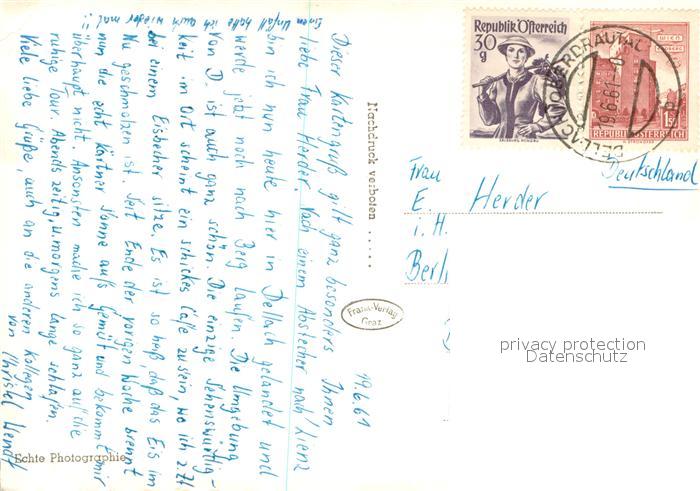 Einen Unfall hatte ich auch wieder mal !!
19.6.61
Dieser Kartengruß gilt ganz besonders Ihnen
liebe Frau Herder. Nach einem Abstecher nach Lienz
bin ich nun heute hier in Dellach gelandet und
werde jetzt noch nach Berg laufen. Die Umgebung
von D. ist auch ganz schön. Die einzige Sehenswürdig-
keit im Ort scheint ein schickes Café zu sein, wo ich z.Zt
bei einem Eisbecher sitze. Es ist so heiß daß das Eis im
Nu geschmolzen ist. Seit Ende der vorigen Woche brennt
nun die echt kärtner Sonne aufs Gemüt und bekommt mir
überhaupt nicht. Ansonsten mache ich so ganz auf die
ruhige Tour. Abends zeitig u. morgens lange schlafen.
Viele liebe Grüße, auch an die anderen Kollegen
von Christel Wendt
Echte Photographie
Nachdruck verboten .....
Frank-Verlag
Graz
Republik Österreich
30
g
SALZBURG, PONGAU
WIEN
ERDBERG
1.50
REPUBLIK ÖSTERREICH
DELLACH IM OBERDRAUTAL
19.6.61
Frau
E. Herder
i. H.
Berli
Deutschland
privacy protection
Datenschutz